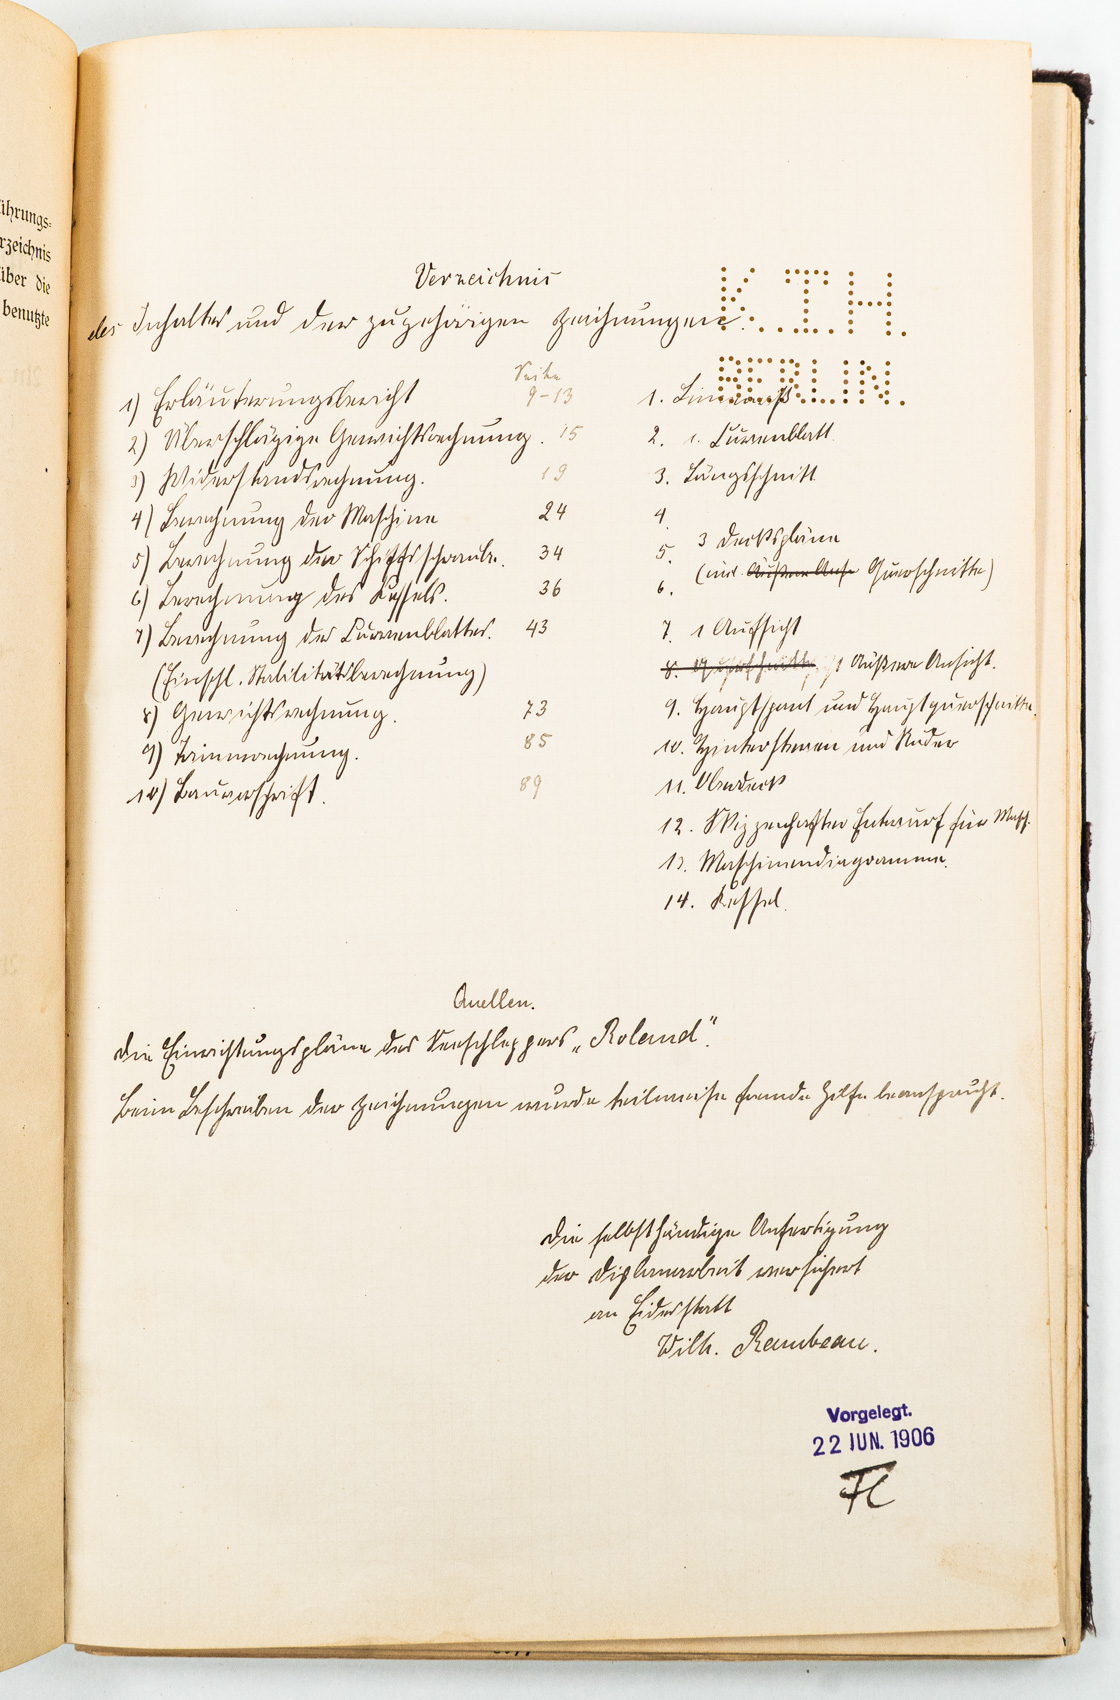 ührungs-
rzeichnis
über die
benutzte
K.T.H.
BERLIN.
Verzeichnis
des Inhaltes und der zugehörigen Zeichnungen.
Seite
1) Erläuterungsbericht 9-13
2) Überschlägige Gewichtsrechnung. 15
3) Widerstandsrechnung. 19
4) Berechnung der Maschine 24
5) Berechnung der Schiffsschraube. 34
6) Berechnung des Kessels. 36
7) Berechnung des Curvenblattes. 43
(Einschl. Stabilitätsberechnung)
8) Gewichtsrechnung. 73
9) Trimmrechnung. 85
10) Bauvorschrift. 89
1. Linienriß
2. 1. Curvenblatt
3. Längsschnitt
4.
5. 3 Deckspläne
6. (und Äußere Ans. Querschnitte)
7. 1 Aufsicht
8. Querschnitte 1 Äußere Ansicht.
9. Hauptspant und Hauptquerschnitte.
10. Hintersteven und Ruder
11. Oberdeck
12. Skizzenhafter Entwurf für Masch.
13. Maschinendiagramme.
14. Kessel.
Quellen.
Die Einrichtungspläne des Seeschleppers „Roland".
Beim Beschreiben der Zeichnungen wurde teilweise fremde Hilfe beansprucht.
Die selbstständige Anfertigung
der Diplomarbeit versichert
an Eidesstatt
Wilh. Rambeau.
Vorgelegt.
22 JUN. 1906
Fl